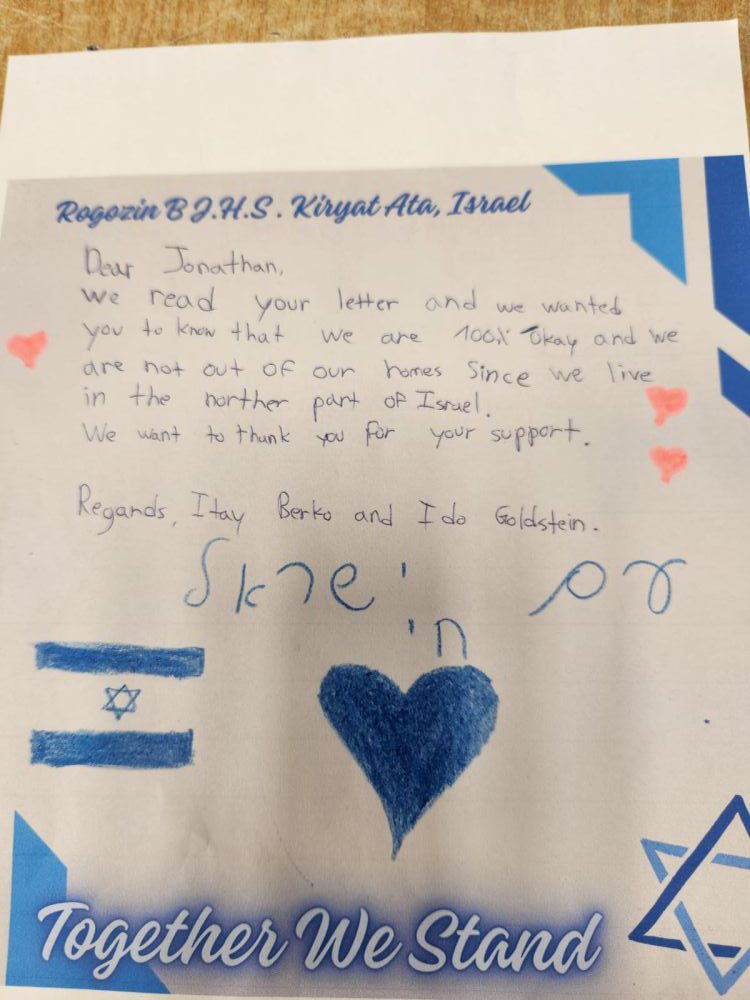 Rogozin B J.H.S. Kiryat Ata, Israel
Dear Jonathan,
we read your letter and we wanted
you to know that we are 100% okay and we
are not out of our homes Since we live
in the norther part of Israel.
We want to thank you for your support.
Regards, Itay Berko and Ido Goldstein.
עם ישראל
חי
Together We Stand